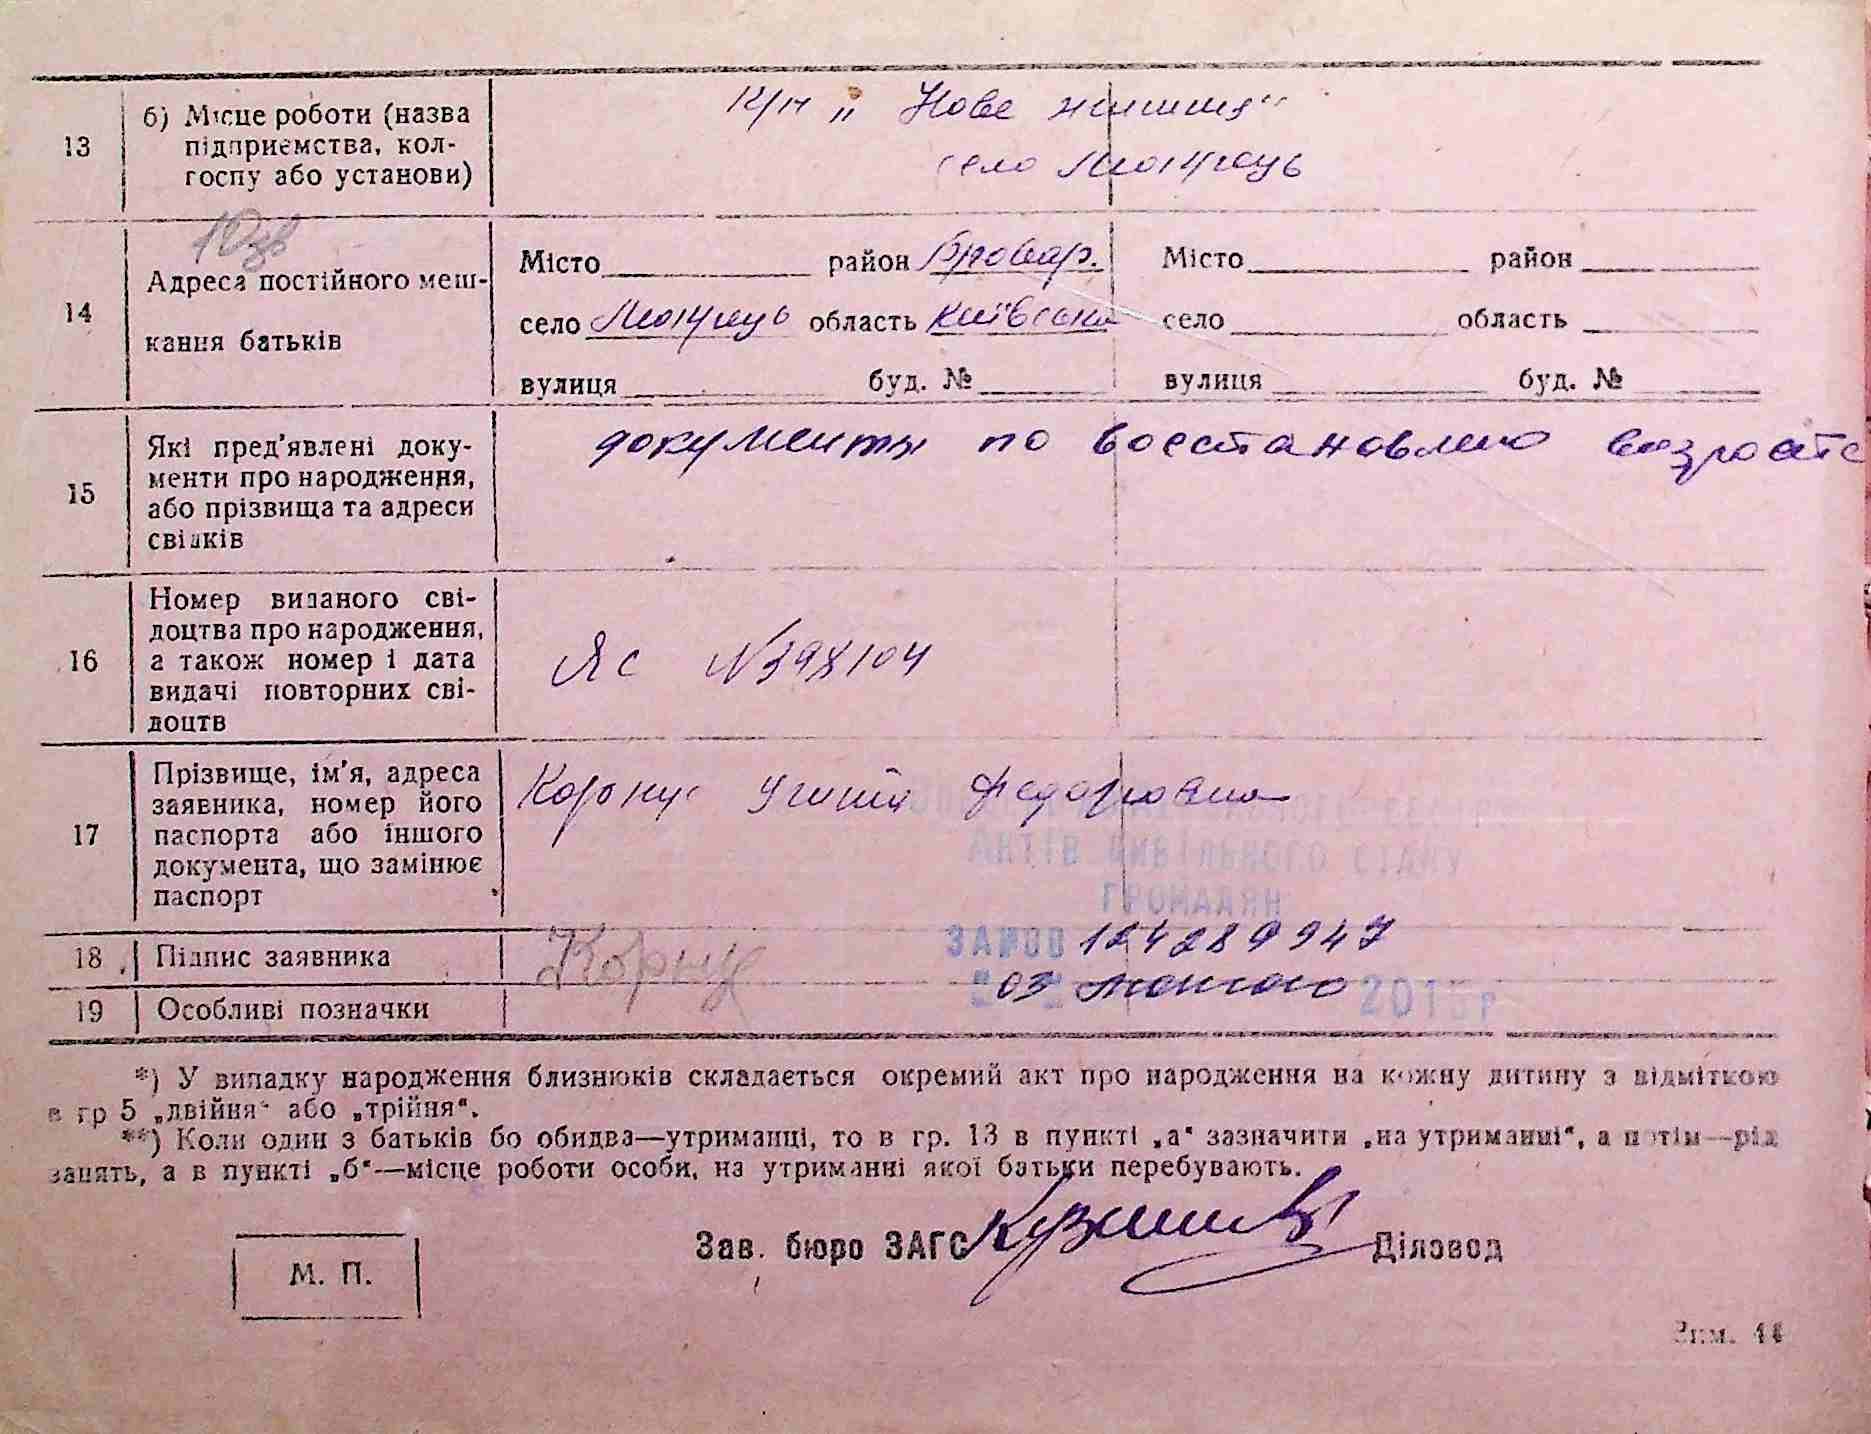 13
б) Місце роботи (назва
підприємства, кол-
госпу або установи)
К/г „ Нове життя"
село
14
Адреса постійного меш-
кання батьків
Місто район Бровар. Місто район
село область Київська село область
вулиця буд. № вулиця буд. №
15
Які пред'явлені доку-
менти про народження,
або прізвища та адреси
свідків
документы по восстановлению возраста
16
Номер виданого сві-
доцтва про народження,
а також номер і дата
видачі повторних сві-
доцтв
ЯС №398104
17
Прізвище, ім'я, адреса
заявника, номер його
паспорта або іншого
документа, що замінює
паспорт
Федоровна
АКТІВ ЦИВІЛЬНОГО СТАНУ
ГРОМАДЯН
18
Підпис заявника
19
Особливі позначки
03 лютого 201
*) У випадку народження близнюків складається окремий акт про народження на кожну дитину з відміткою
в гр 5 „двійня" або „трійня".
**) Коли один з батьків бо обидва—утриманці, то в гр. 13 в пункті „а" зазначити „на утриманні", а потім—рід
занять, а в пункті „б"—місце роботи особи, на утриманні якої батьки перебувають.
Зав. бюро ЗАГС Діловод
М. П.